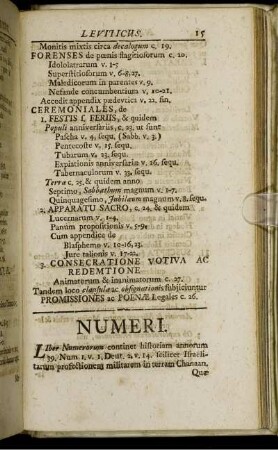 LEVITICUS. 15
Monitis mixtis circa decalogum c. 19.
FORENSES de pœnis flagitiosorum c. 20.
Idololatrarum v. 1-7
Superstitiosorum v. 6-8. 27.
Maledicorum in parentes v. 9.
Nefande concumbentium v. 10-21.
Accedit appendix pædevtica v. 22. fin.
CEREMONIALES, de
1. FESTIS & FERIIS, & quidem
Populi anniversariis, c. 23. ut sunt
Pascha v. 4. sequ. (Sabb. v. 3.)
Pentecoste v. 15. sequ.
Tubarum v. 23. sequ.
Expiationis anniversaria v. 26. sequ.
Tabernaculorum v. 33. sequ.
Terræ c. 25. & quidem anno
Septimo, Sabbathum magnum v. 1-7.
Quinquagesimo, Jubilæum magnum v. 8. sequ.
2. APPARATU SACRO, c. 24. & quidem
Lucernarum v. 1-4.
Panum propositionis v. 5-9.
Cum appendice de
Blasphemo v. 10-16, 23.
Jure talionis v. 17-22.
3. CONSECRATIONE VOTIVA AC
REDEMTIONE
Animatorum & inanimatorum c. 27.
Tandem loco clausulæ ac obsignationis subjiciuntur
PROMISSIONES ac POENÆ Legales c. 26.
NUMERI.
Liber Numerorum continet historiam annorum
39. Num. 1. v. 1. Deut. 2. v. 14. scilicet Israeli-
tarum profectionem militarem in terram Chanaan.
Quæ